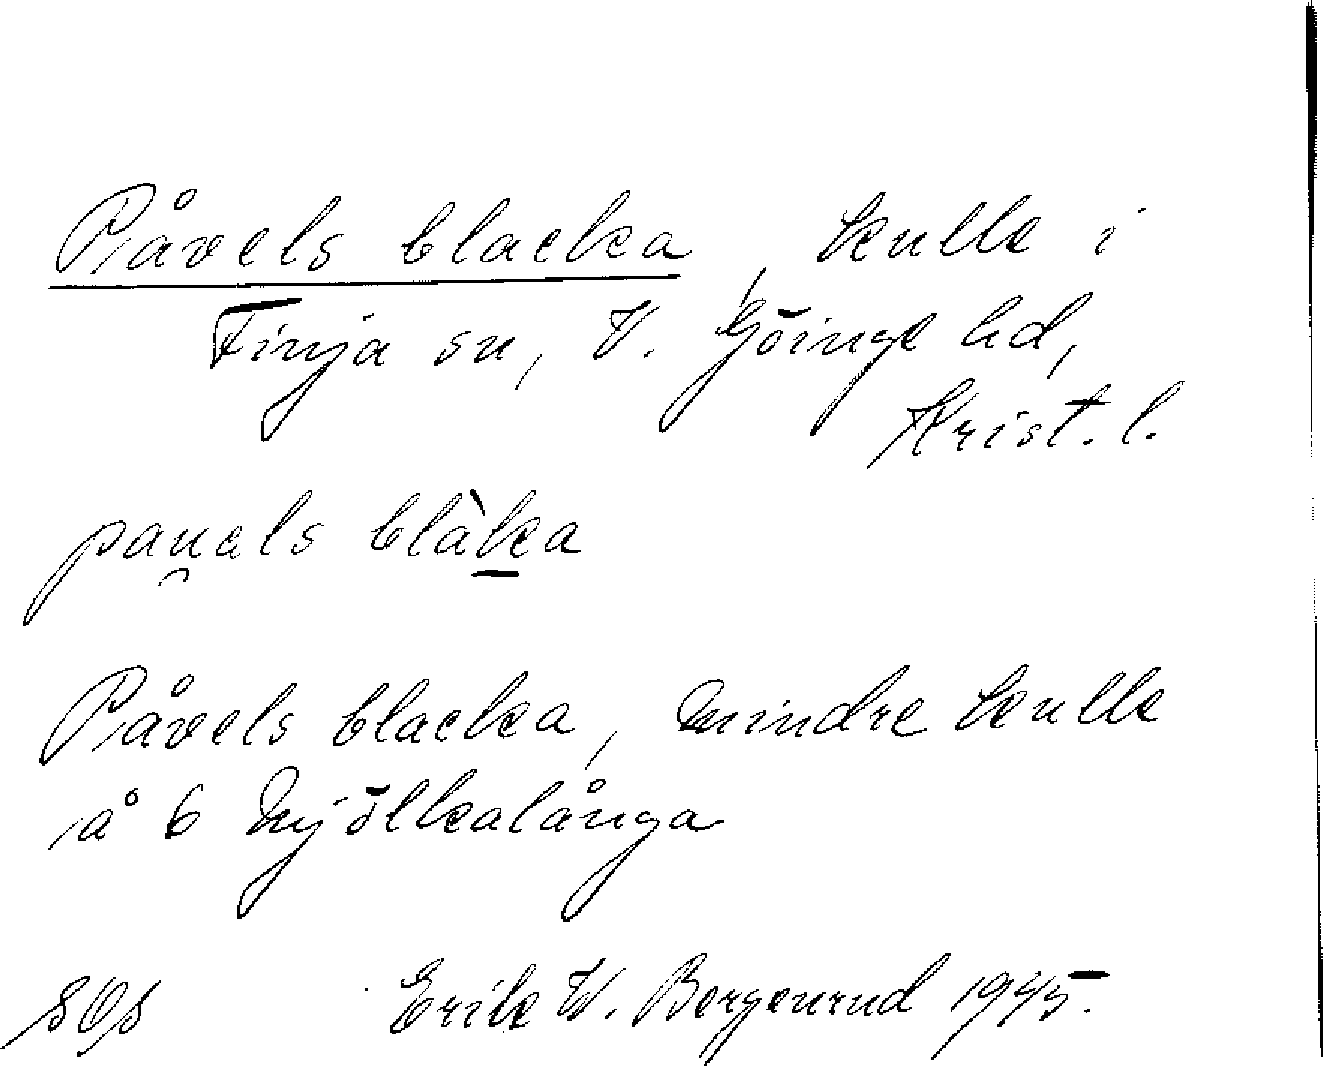 Påvels blacka, kulle i
Finja sn, V. Göinge hd,
Krist. l.
pau̯als blàk̲a
Påvels blacka, mindre kulle
å 6 Mjölkalånga
Erik W. Bergenrud 1945.